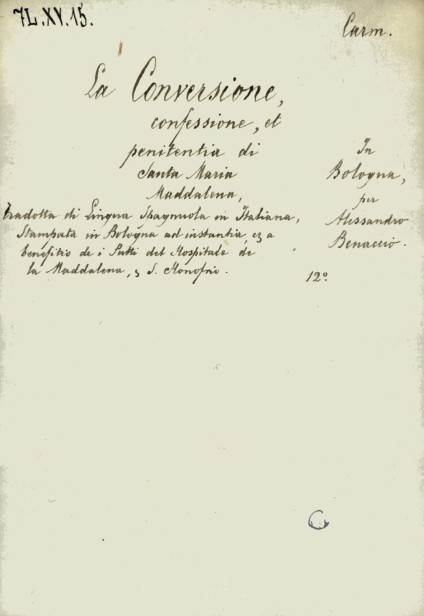 7L.XV.15.
Carm.
La Conversione,
confessione, et
penitentia di
Santa Maria
Maddalena,
tradotta di Lingua Spagnuola in Italiana,
Stampata in Bologna ad instantia, et a
benefitio de i Putti del Hospitale de
la Maddalena, S. Honofrio.
In
Bologna,
per
Alessandro
Benaccio.
12º